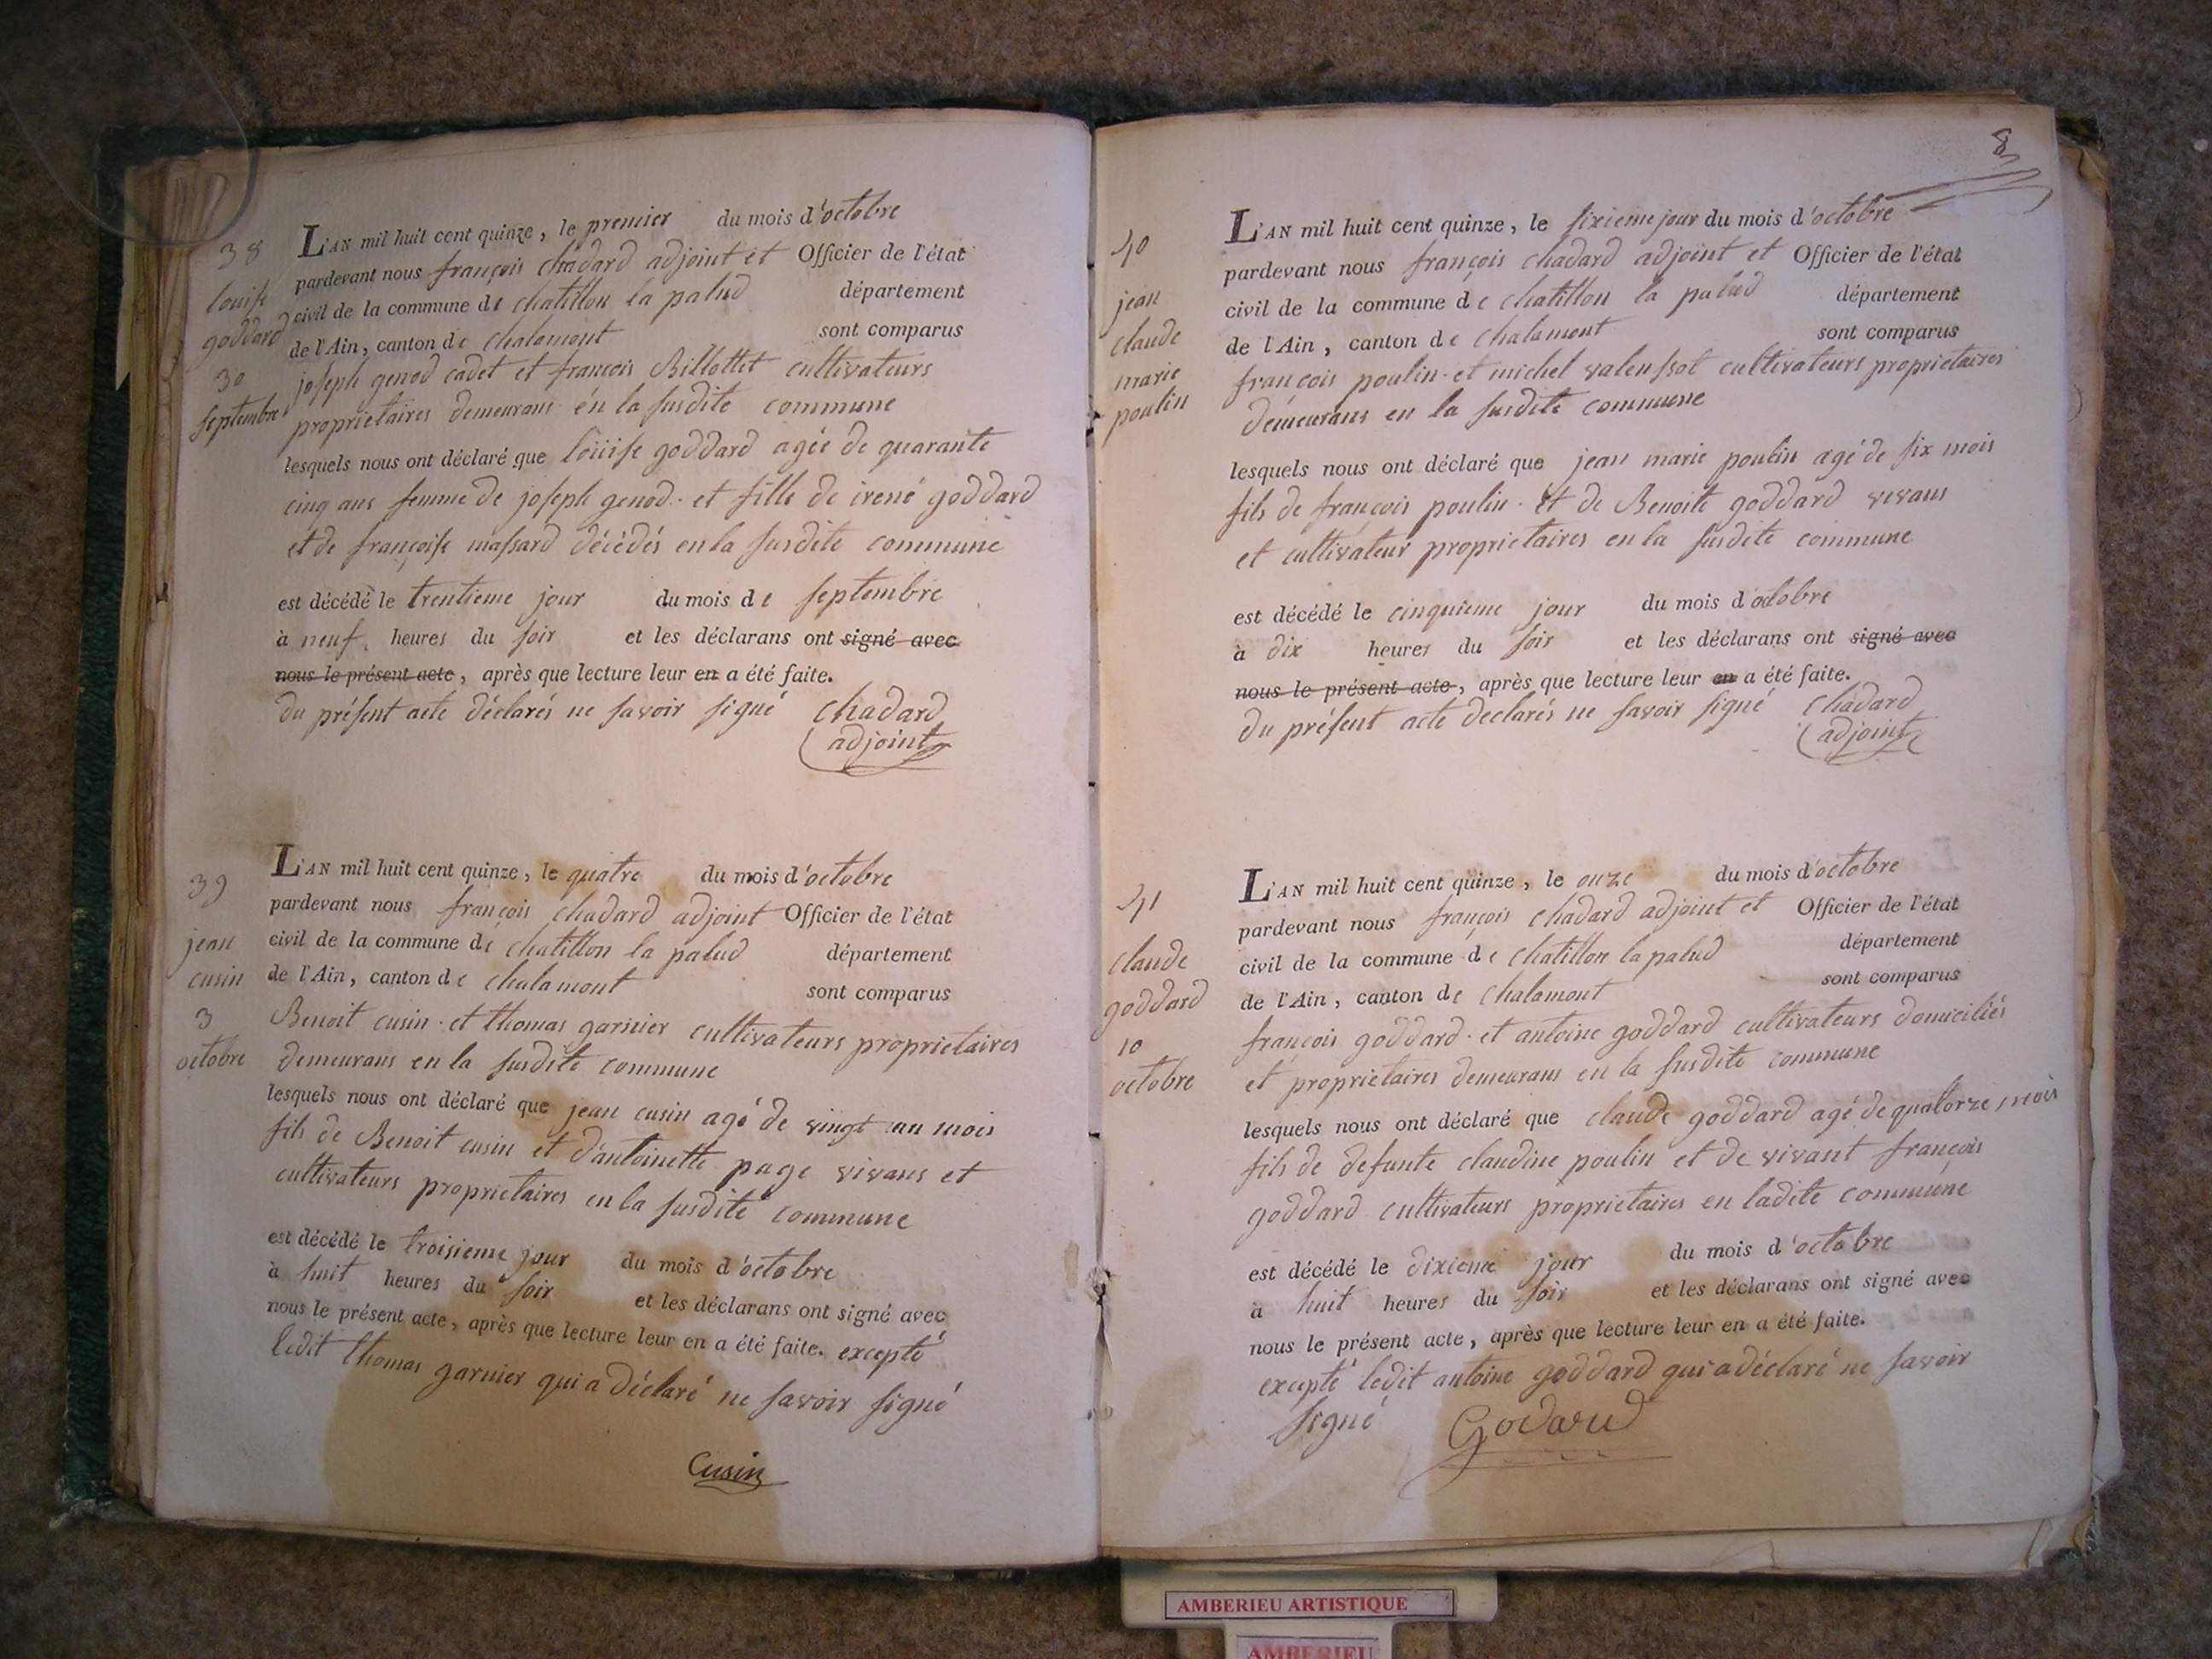 38
louise
goddard
30
septembre
L'AN mil huit cent quinze, le premier du mois d'octobre
pardevant nous françois chadard adjoint et Officier de l'état
civil de la commune de chatillon la palud département
de l'Ain, canton de chalamont sont comparus
joseph genod cadet et francois Billottet cultivateurs
proprietaires demeurans en la susdite commune
lesquels nous ont déclaré que louise goddard agée de quarante
cinq ans femme de joseph genod. et fille de irené goddard
et de françoise massard décédés en la susdite commune
est décédé le trentieme jour du mois de septembre
à neuf heures du soir et les déclarans ont signé avec
nous le présent acte, après que lecture leur en a été faite.
du présent acte déclarés ne savoir signé chadard
adjoint
39
jean
cusin
3
octobre
L'AN mil huit cent quinze, le quatre du mois d'octobre
pardevant nous françois chadard adjoint Officier de l'état
civil de la commune de chatillon la palud département
de l'Ain, canton de chalamont sont comparus
Benoit cusin. et thomas garnier cultivateurs proprietaires
demeurans en la susdite commune
lesquels nous ont déclaré que jean cusin agé de vingt un mois
fils de Benoit cusin et d'antoinette page vivans et
cultivateurs proprietaires en la susdite commune
est décédé le troisieme jour du mois d'octobre
à huit heures du soir et les déclarans ont signé avec
nous le présent acte, après que lecture leur en a été faite. excepté
ledit thomas garnier qui a déclaré ne savoir signé
Cusin
8
40
jean
claude
marie
poulin
L'AN mil huit cent quinze, le sixieme jour du mois d'octobre
pardevant nous françois chadard adjoint et Officier de l'état
civil de la commune de chatillon la palud département
de l'Ain, canton de chalamont sont comparus
françois poulin. et michel valenssot cultivateurs proprietaires
demeurans en la susdite commune
lesquels nous ont déclaré que jean marie poulin agé de six mois
fils de françois poulin. et de Benoite goddard vivans
et cultivateur proprietaires en la susdite commune
est décédé le cinquieme jour du mois d'octobre
à dix heures du soir et les déclarans ont signé avec
nous le présent acte, après que lecture leur en a été faite.
du présent acte declarés ne savoir signé chadard
adjoint
41
claude
goddard
10
octobre
L'AN mil huit cent quinze, le onze du mois d'octobre
pardevant nous françois chadard adjoint et Officier de l'état
civil de la commune de chatillon la palud département
de l'Ain, canton de chalamont sont comparus
françois goddard. et antoine goddard cultivateurs domiciliés
et proprietaires demeurans en la susdite commune
lesquels nous ont déclaré que claude goddard agé de quatorze mois
fils de defunte claudine poulin et de vivant françois
goddard cultivateurs proprietaires en ladite commune
est décédé le dixieme jour du mois d'octobre
à huit heures du soir et les déclarans ont signé avec
nous le présent acte, après que lecture leur en a été faite.
excepté ledit antoine goddard qui a déclaré ne savoir
signé Godard
AMBERIEU ARTISTIQUE
AMBERIEU